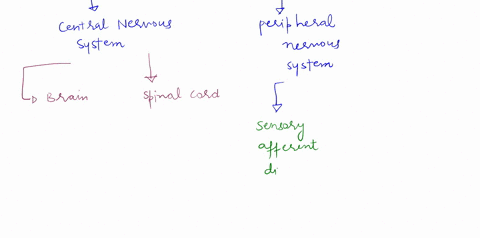 Central Nervous
System
Brain
Spinal cord
peripheral
nervous
system
Sensory
afferent
di